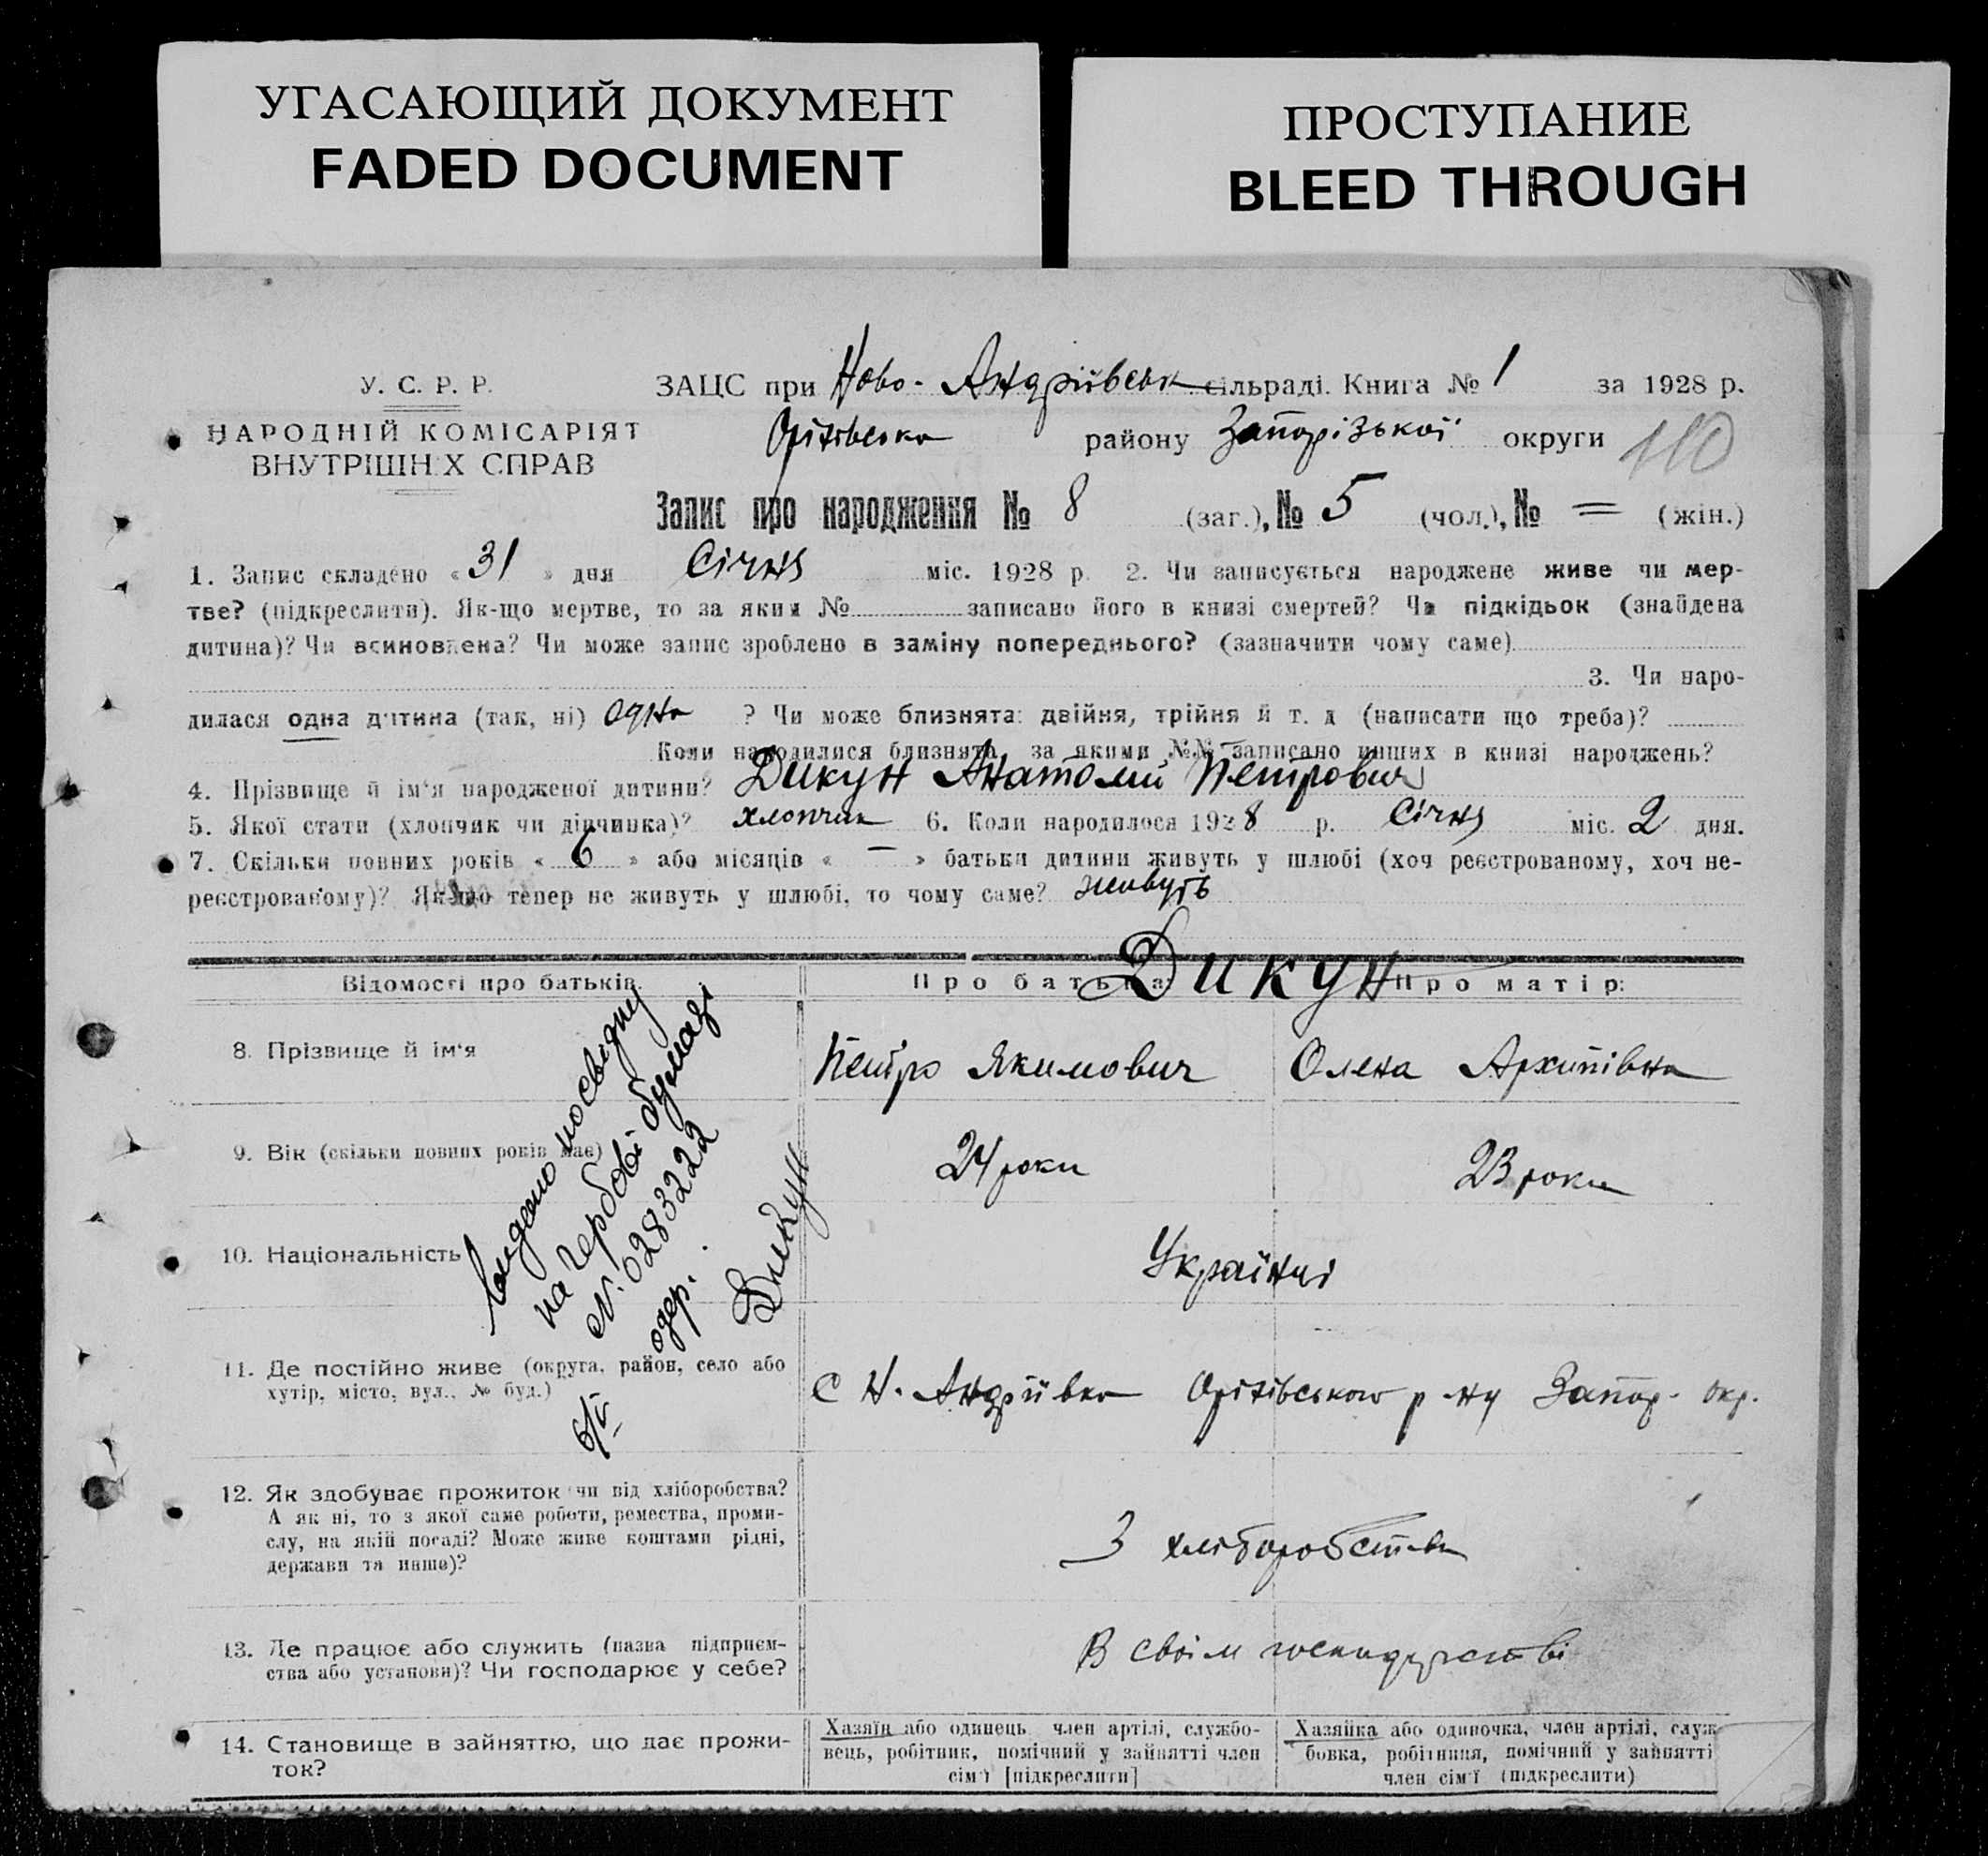 УГАСАЮЩИЙ ДОКУМЕНТ
FADED DOCUMENT
ПРОСТУПАНИЕ
BLEED THROUGH
У. С. Р. Р.
НАРОДНІЙ КОМІСАРІЯТ
ВНУТРІШНІХ СПРАВ
ЗАЦС при Ново-Андріївськ сільраді. Книга № 1 за 1928 р.
Оріхівсько району Запорізької округи 110
Запис про народження № 8 (заг.), № 5 (чол.), № = (жін.)
1. Запис складено « 31 » дня Січня міс. 1928 р. 2. Чи записується народжене живе чи мер-
тве? (підкреслити). Як-що мертве, то за яким № записано його в книзі смертей? Чи підкідьок (знайдена
дитина)? Чи всиновлена? Чи може запис зроблено в заміну попереднього? (зазначити чому саме)
3. Чи наро-
дилася одна дитина (так, ні) одна ? Чи може близнята: двійня, трійня й т. д (написати що треба)?
Коли народилися близнята, за якими №№ записано инших в книзі народжень?
4. Прізвище й ім'я народженої дитини? Дикун Анатолий Петрович
5. Якої стати (хлопчик чи дівчинка)? хлопчик 6. Коли народилося 1928 р. Січня міс. 2 дня.
7. Скільки повних років « 6 » або місяців « – » батьки дитини живуть у шлюбі (хоч реєстрованому, хоч не-
реєстрованому)? Як-що тепер не живуть у шлюбі, то чому саме? живуть
Відомості про батьків. Про батька: Дикун Про матір:
8. Прізвище й ім'я Петро Якимович Олена Архипівна
9. Вік (скільки повних років має) 24 роки 23 роки
10. Національність Українці
11. Де постійно живе (округа, район, село або
хутір, місто, вул., № буд.)
С Н. Андріївка Оріхівського р-ну Запор. окр.
12. Як здобуває прожиток чи від хліборобства?
А як ні, то з якої саме роботи, ремества, проми-
слу, на якій посаді? Може живе коштами рідні,
держави та инше)?
З хліборобства
13. Де працює або служить (назва підприєм-
ства або установи)? Чи господарює у себе?
В своїм господарстві
14. Становище в зайняттю, що дає прожи-
ток?
Хазяїн або одинець член артілі, службо-
вець, робітник, помічний у зайнятті член
сім'ї [підкреслити]
Хазяйка або одиночка, член артілі, служ-
бовка, робітниця, помічний у зайнятті
член сім'ї (підкреслити)
видано посвідку
на гербові бумазі
N. 0283222
одер.
Дикун